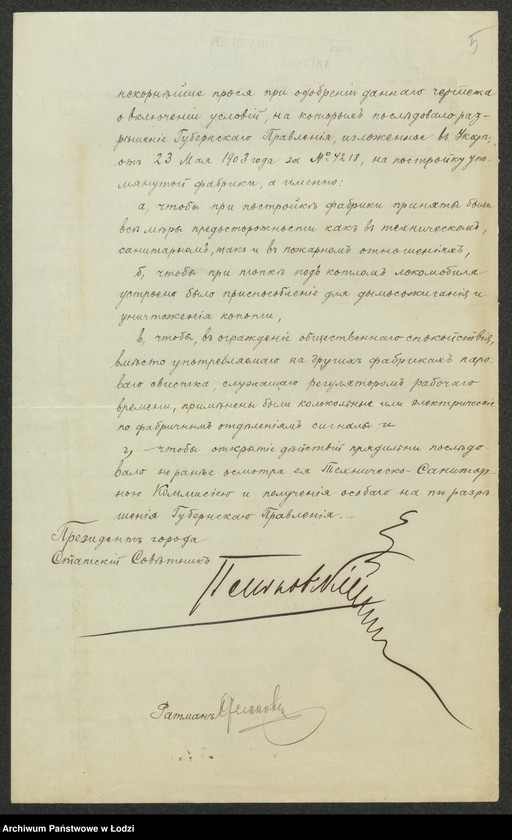 5
покорнѣйше прося при одобреніи даннаго чертежа
о включеніи условій, на которыхъ послѣдовало раз-
рѣшеніе Губернскаго Правленія, изложенное въ Указѣ
отъ 23 Мая 1903 года за № 4218, на постройку упо-
мянутой фабрики, а именно:
а, чтобы при постройкѣ фабрики приняты были
всѣ мѣры предосторожности какъ въ техническомъ,
санитарномъ, такъ и въ пожарномъ отношеніяхъ,
б, чтобы при топкѣ подъ котломъ локомобиля
устроено было приспособленіе для дымосожиганія и
уничтоженія копоти,
в, чтобы, въ огражденіе общественнаго спокойствія,
вмѣсто употребляемаго на другихъ фабрикахъ паро-
ваго свистка, служащаго регуляторомъ рабочаго
времени, примѣнены были колокольные или электрическіе
по фабричнымъ отдѣленіямъ сигналы и
г, чтобы открытіе дѣйствій прядильни послѣдо-
вало не ранѣе осмотра ея Техническо-Санитар-
ною Коммисіею и полученія особаго на то разрѣ-
шенія Губернскаго Правленія.—
Президентъ города
Статскій Совѣтникъ
Пеньковскій
Ратманъ
Archiwum Państwowe w Łodzi